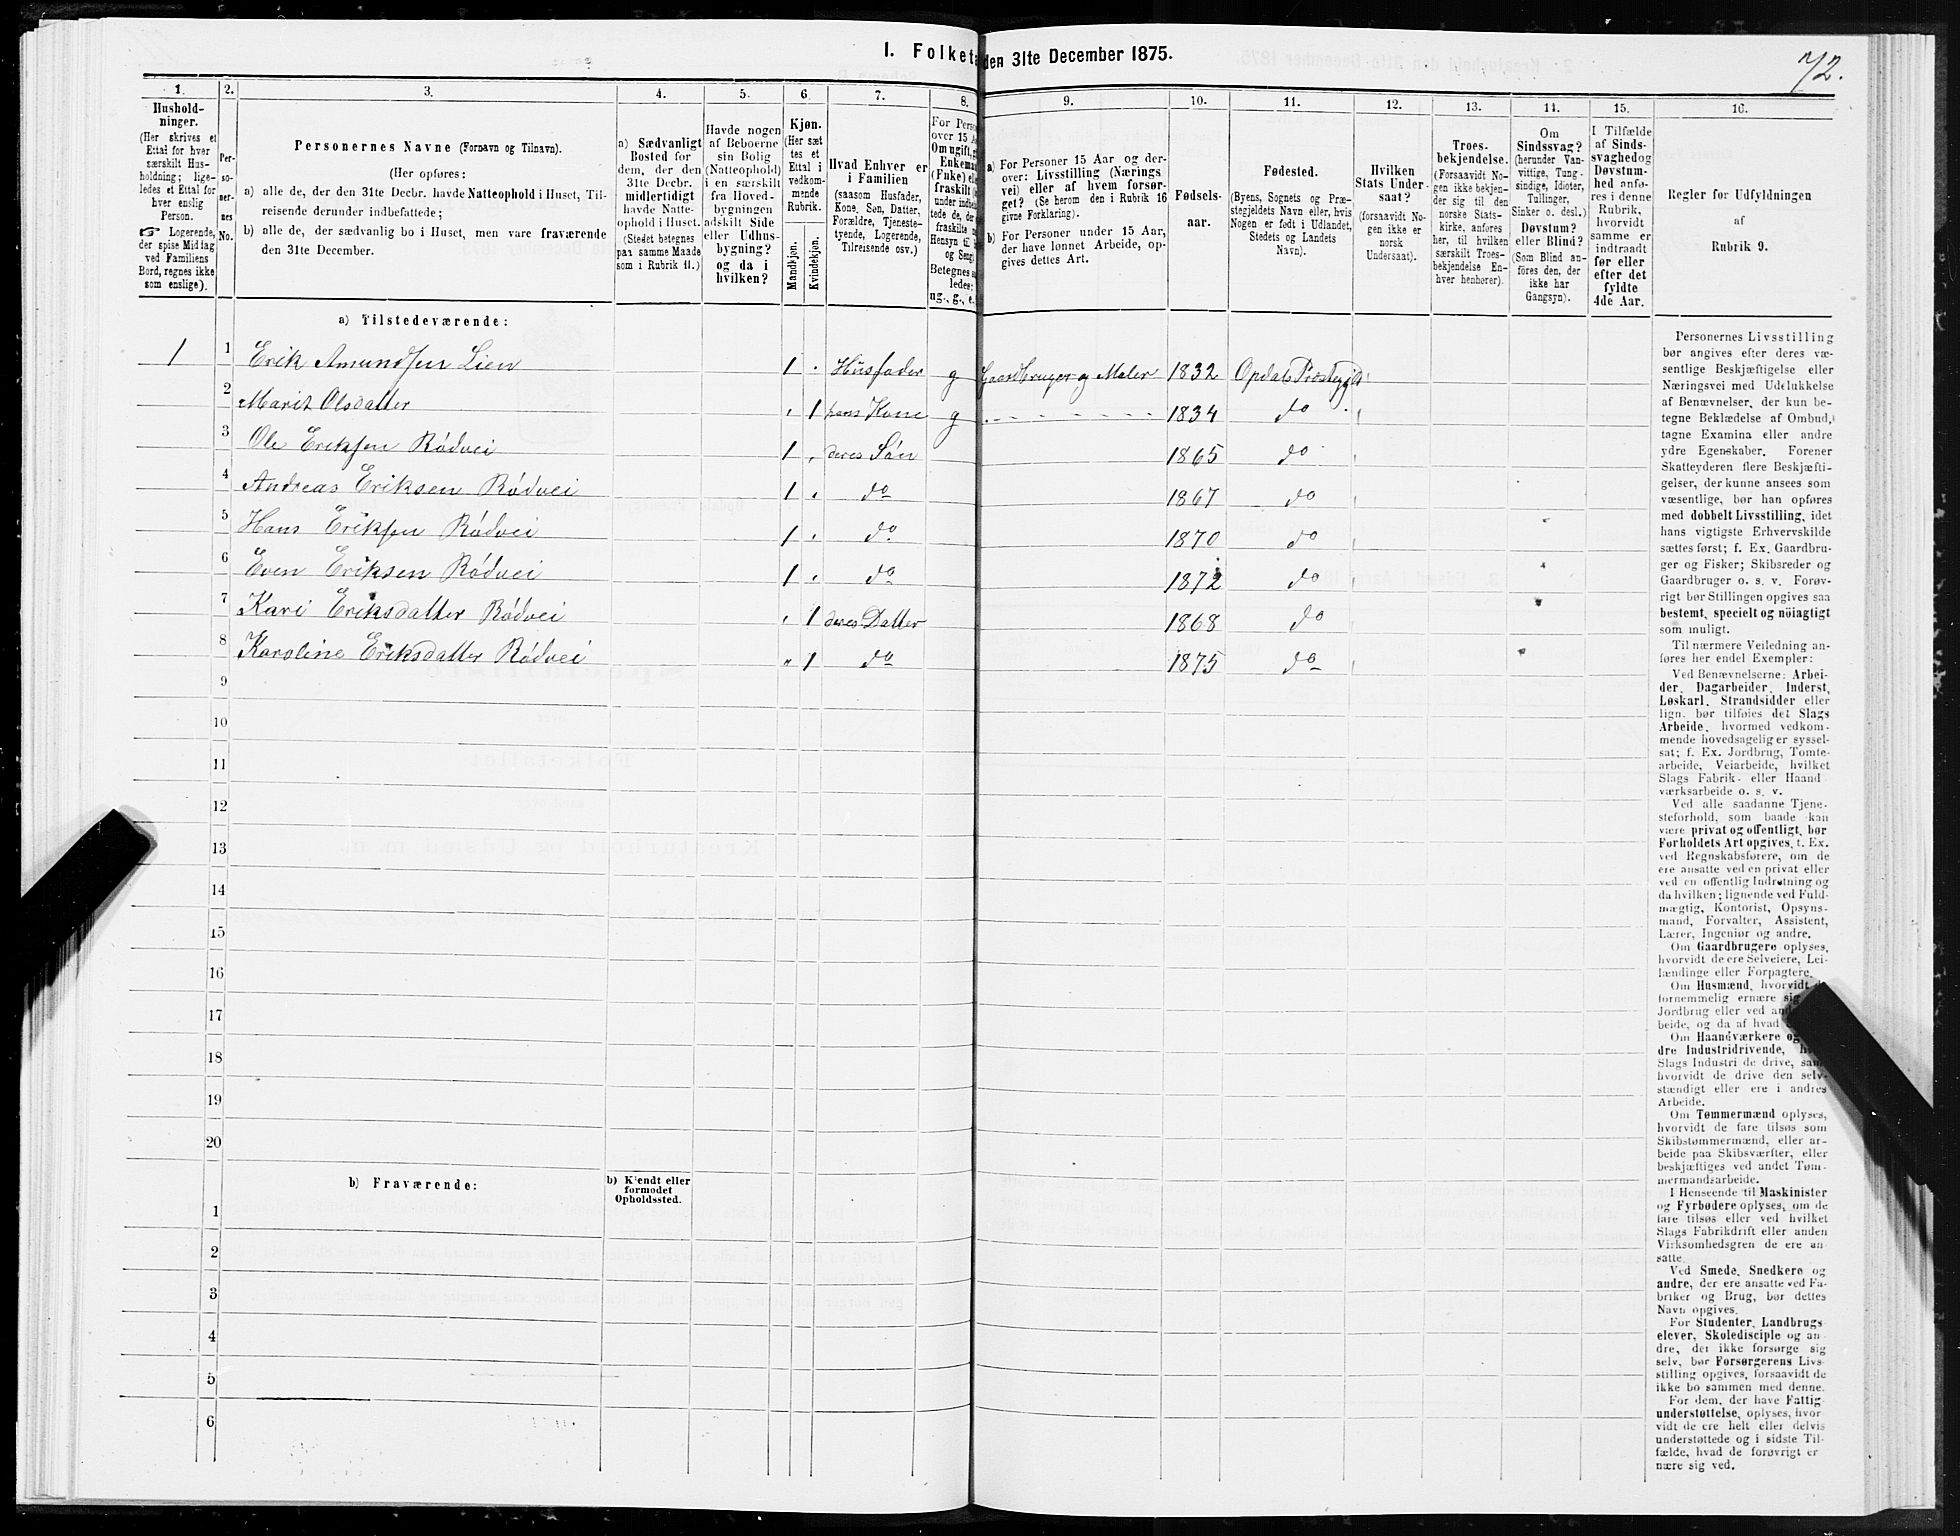 I. Folketa den 31te December 1875.
72.
1. 2. 3. 4. 5. 6. 7. 8. 9. 10. 11. 12. 13. 14. 15. 16.
Hushold-
ninger.
(Her skrives et
Ettal for hver
særskilt Hus-
holdning; lige-
ledes et Ettal for
hver enslig
Person.
☞ Logerende,
der spise Middag
ved Familiens
Bord, regnes ikke
som enslige).
Per-
so-
ner-
nes
No.
Personernes Navne (Fornavn og Tilnavn).
(Her opføres:
a) alle de, der den 31te Decbr. havde Natteophold i Huset, Til-
reisende derunder indbefattede;
b) alle de, der sædvanlig bo i Huset, men vare fraværende
den 31te December.
a) Sædvanligt
Bosted for
dem, der den
31te Decbr.
midlertidigt
havde Natte-
ophold i Huset.
(Stedet betegnes
paa samme Maade
som i Rubrik 11.)
Havde nogen
af Beboerne
sin Bolig
(Natteophold)
i en særskilt
fra Hoved-
bygningen
adskilt Side
eller Udhus-
bygning?
og da i
hvilken?
Kjøn.
(Her sæt
tes et
Ettal i
vedkom-
mende
Rubrik.
Mandkjøn.
Kvindekjøn.
Hvad Enhver er
i Familien
(saasom Husfader,
Kone, Søn, Datter,
Forældre, Tjeneste-
tyende, Logerende,
Tilreisende osv.)
For Perso
over 15 Aa
Om ugift, g
Enkema
(Fuke) ell
fraskilt (
under indbe
tede de, de
fraskilte
Hensyn til
og Seng)
Betegnes s
ledes:
ug., g., e.
a) For Personer 15 Aar og der-
over: Livsstilling (Nærings
vei) eller af hvem forsør-
get? (Se herom den i Rubrik 16
givne Forklaring).
b) For Personer under 15 Aar,
der have lønnet Arbeide, op-
gives dettes Art.
Fødsels-
aar.
Fødested.
(Byens, Sognets og Præ-
stegjeldets Navn eller, hvis
Nogen er født i Udlandet,
Stedets og Landets
Navn).
Hvilken
Stats Under-
saat?
(forsaavidt No-
gen ikke er
norsk
Undersaat).
Troes-
bekjendelse.
(Forsaavidt No-
gen ikke bekjen-
der sig til den
norske Stats-
kirke, anføres
her, til hvilken
særskilt Troes-
bekjendelse En-
hver henhører).
Om
Sindssvag?
(herunder Van-
vittige, Tung-
sindige, Idioter,
Tullinger,
Sinker o. desl.)
Døvstum?
eller Blind?
(Som Blind an-
føres den, der
ikke har
Gangsyn).
I Tilfælde
af Sinds-
svaghed og
Døvstum-
hed anfø-
res i denne
Rubrik,
hvorvidt
samme er
indtraadt
før eller
efter det
fyldte
4de Aar.
Regler for Udfyldningen
af
Rubrik 9.
a) Tilstedeværende:
1 1 Erik Amundsen Lien 1 Husfader g Gaardbruger og Maler 1832 Opdals Præstegjd
2 Marit Olsdatter 1 hans Kone g 1834 do
3 Ole Eriksen Rødvei 1 deres Søn 1865 do
4 Andreas Eriksen Rødvei 1 do 1867 do
5 Hans Eriksen Rødvei 1 do 1870 do
6 Even Eriksen Rødvei 1 do 1872 do
7 Kari Eriksdatter Rødvei 1 deres Datter 1868 do
8 Karoline Eriksdatter Rødvei 1 do 1875 do
9
10
11
12
13
14
15
16
17
18
19
20
b) Fraværende:
b) Kjendt eller
formodet
Opholdssted.
1
2
3
4
5
6
Personernes Livsstilling
bør angives efter deres væ-
sentlige Beskjæftigelse eller
Næringsvei med Udelukkelse
af Benævnelser, der kun be-
tegne Beklædelse af Ombud,
tagne Examina eller andre
ydre Egenskaber. Forener
Skatteyderen flere Beskjæfti-
gelser, der kunne ansees som
væsentlige, bør han opføres
med dobbelt Livsstilling, idet
hans vigtigste Erhvervskilde
sættes først; f. Ex. Gaardbru-
ger og Fisker; Skibsreder og
Gaardbruger o. s. v. Forøv-
rigt bør Stillingen opgives saa
bestemt, specielt og nöiagtigt
som muligt.
Til nærmere Veiledning an-
føres her endel Exempler:
Ved Benævnelserne: Arbei-
der, Dagarbeider, Inderst,
Løskarl, Strandsidder eller
lign. bør tilføies det Slags
Arbeide, hvormed vedkom-
mende hovedsagelig er syssel-
sat; f. Ex. Jordbrug, Tomte-
arbeide, Veiarbeide, hvilket
Slags Fabrik- eller Haand
værksarbeide o. s. v.
Ved alle saadanne Tjene-
steforhold, som baade kan
være privat og offentligt, bør
Forholdets Art opgives, t. Ex.
ved Regnskabsførere, om de
ere ansatte ved en privat eller
ved en offentlig Indretning og
da hvilken; lignende ved Fuld-
mægtig, Kontorist, Opsyns-
mand, Forvalter, Assistent,
Lærer, Ingeniør og andre.
Om Gaardbrugere oplyses,
hvorvidt de ere Selveiere, Lei-
lændinge eller Forpagtere.
Om Husmænd, hvorvidt
fornemmelig ernære sig
Jordbrug eller ved an
beide, og da af hvad
Om Haandværkere og
dre Industridrivende,
Slags Industri de drive, sam
hvorvidt de drive den selv-
stændigt eller ere i andres
Arbeide.
Om Tømmermænd oplyses,
hvorvidt de fare tilsøs som
Skibstømmermænd, eller ar-
beide paa Skibsværfter, eller
beskjæftiges ved andet Tøm-
mermandsarbeide.
I Henseende til Maskinister
og Fyrbødere oplyses, om de
fare tilsøs eller ved hvilket
Slags Fabrikdrift eller anden
Virksomhedsgren de ere an-
satte.
Ved Smede, Snedkere og
andre, der ere ansatte ved Fa-
briker og Brug, bør dettes
Navn opgives.
For Studenter, Landbrugs-
elever, Skoledisciple og an-
dre, der ikke forsørge sig
selv, bør Forsørgerens Livs-
stilling opgives, forsaavidt de
ikke bo sammen med denne.
For dem, der have Fattig-
understøttelse, oplyses, hvor-
vidt de ere helt eller delvis
understøttede og i sidste Til-
fælde, hvad de forøvrigt er
nære sig ved.